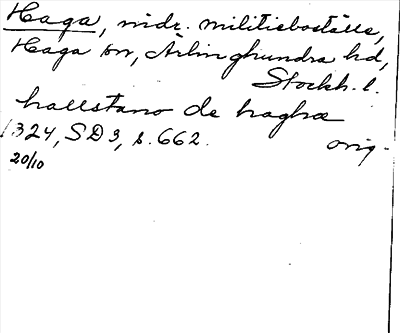 Haga, indr. militieboställe,
Haga sn, Ärlinghundra hd,
Stockh. l.
hallstano de haghæ
1324, SD 3, s. 662. orig.
20/10